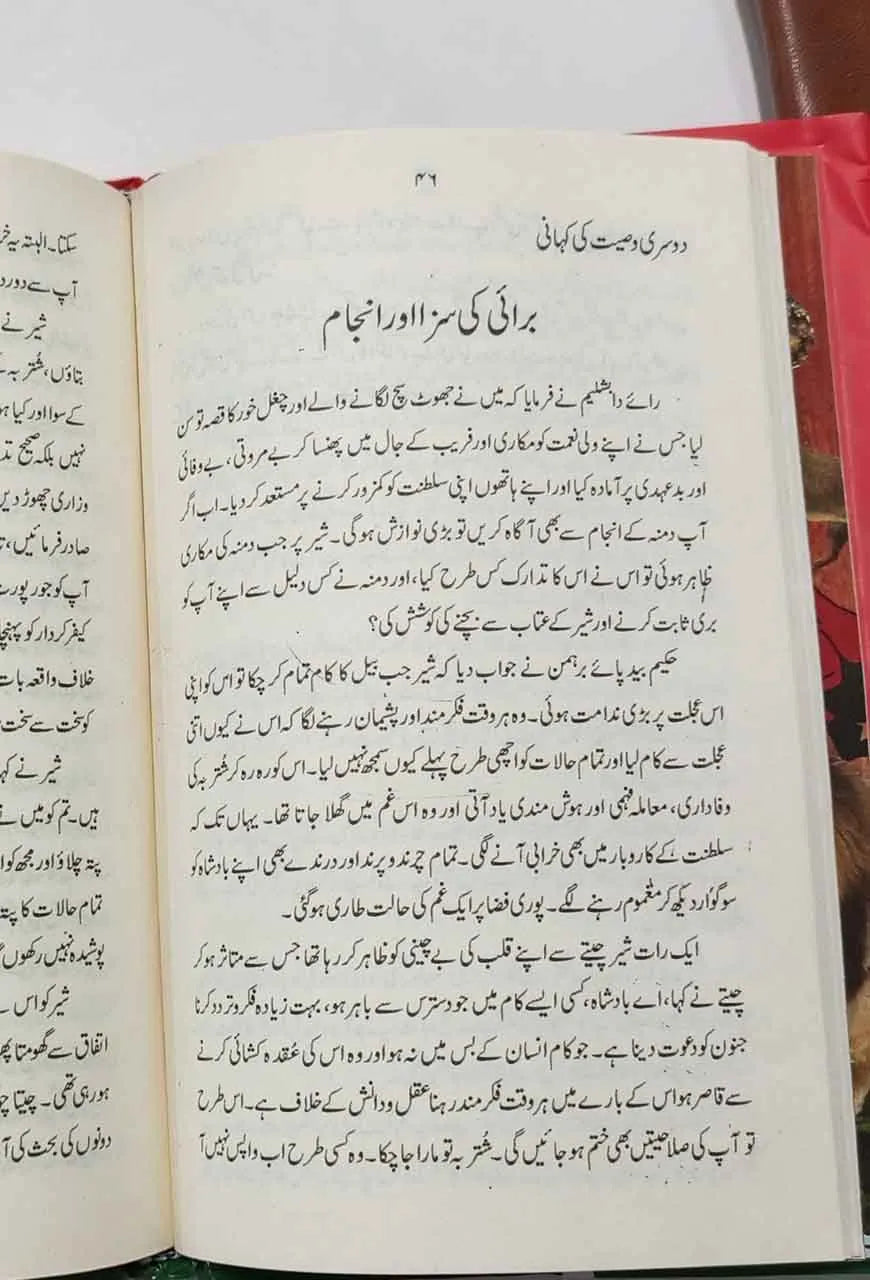 ۴۶
دوسری وصیت کی کہانی
برائی کی سزا اور انجام
رائے دابشلیم نے فرمایا کہ میں نے جھوٹ سچ لگانے والے اور چغل خور کا قصہ تو سن
لیا جس نے اپنے ولی نعمت کو مکاری اور فریب کے جال میں پھنسا کر بے مروتی، بے وفائی
اور بدعہدی پر آمادہ کیا اور اپنے ہاتھوں اپنی سلطنت کو کمزور کرنے پر مستعد کر دیا۔ اب اگر
آپ دمنہ کے انجام سے بھی آگاہ کریں تو بڑی نوازش ہوگی۔ شیر پر جب دمنہ کی مکاری
ظاہر ہوئی تو اس نے اس کا تدارک کس طرح کیا، اور دمنہ نے کس دلیل سے اپنے آپ کو
بری ثابت کرنے اور شیر کے عتاب سے بچنے کی کوشش کی؟
حکیم بیدپائے برہمن نے جواب دیا کہ شیر جب بیل کا کام تمام کر چکا تو اس کو اپنی
اس عجلت پر بڑی ندامت ہوئی۔ وہ ہر وقت فکر مند اور پشیمان رہنے لگا کہ اس نے کیوں اتنی
عجلت سے کام لیا اور تمام حالات کو اچھی طرح پہلے کیوں سمجھ نہیں لیا۔ اس کو رہ رہ کر شُتربہ کی
وفاداری، معاملہ فہمی اور ہوش مندی یاد آتی اور وہ اس غم میں گھلا جاتا تھا۔ یہاں تک کہ
سلطنت کے کاروبار میں بھی خرابی آنے لگی۔ تمام چرند و پرند اور درندے بھی اپنے بادشاہ کو
سوگوار دیکھ کر مغموم رہنے لگے۔ پوری فضا پر ایک غم کی حالت طاری ہوگئی۔
ایک رات شیر چیتے سے اپنے قلب کی بے چینی کو ظاہر کر رہا تھا جس سے متاثر ہو کر
چیتے نے کہا، اے بادشاہ، کسی ایسے کام میں جو دسترس سے باہر ہو، بہت زیادہ فکر و تردد کرنا
جنون کو دعوت دینا ہے۔ جو کام انسان کے بس میں نہ ہو اور وہ اس کی عُقدہ کشائی کرنے
سے قاصر ہو اس کے بارے میں ہر وقت فکر مند رہنا عقل و دانش کے خلاف ہے۔ اس طرح
تو آپ کی صلاحیتیں بھی ختم ہو جائیں گی۔ شُتربہ تو مارا جا چکا۔ وہ کسی طرح اب واپس نہیں آ
سکتا۔ البتہ یہ
آپ سے دور
شیر نے
بتاؤں، شُتربہ
کے سوا اور کیا
نہیں بلکہ صحیح
وزاری چھوڑ دیں
صادر فرمائیں،
آپ کو جور
کیفر کردار کو
خلاف واقعہ بات
کو سخت سے سخت
شیر نے
ہیں۔ تم کو میں نے
پتہ چلاؤ اور مجھ کو
تمام حالات کا پتہ
پوشیدہ نہیں رکھوں
شیر کو اس
اتفاق سے گھومتا
ہو رہی تھی۔ چیتا
دونوں کی بحث کی